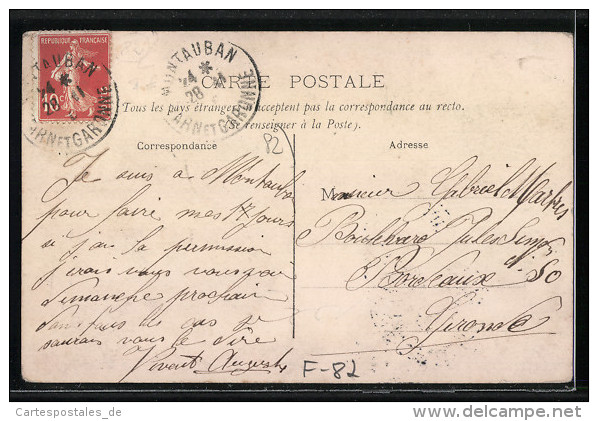 RÉPUBLIQUE FRANÇAISE
10c
MONTAUBAN
TARN ET GARONNE
MONTAUBAN
TARN ET GARONNE
CARTE POSTALE
Tous les pays étrangers n'acceptent pas la correspondance au recto.
(Se renseigner à la Poste).
Correspondance
Adresse
82
Je suis à Montauba
pour faire mes 17 jours
si j'ai la permission
j'irais vous
dimanche prochain
dans tous les cas je
saurais vous le dire
Auguste
Monsieur Gabriel
Boulevard Jules Simon
Bordeaux
Gironde
F-82
Cartespostales_de
www.delcampe.net